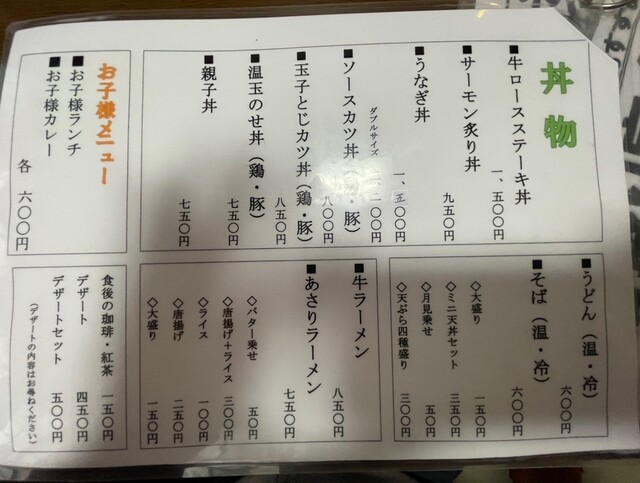 丼物
■牛ロースステーキ丼 一、五〇〇円
■サーモン炙り丼 九五〇円
■うなぎ丼 一、五〇〇円
■ソースカツ丼（鶏・豚） 八〇〇円
ダブルサイズ 一、二〇〇円
■玉子とじカツ丼（鶏・豚） 八五〇円
■温玉のせ丼（鶏・豚） 七五〇円
■親子丼 七五〇円
お子様メニュー
■お子様ランチ
■お子様カレー
各 六〇〇円
■うどん（温・冷） 六〇〇円
■そば（温・冷） 六〇〇円
◇大盛り 一五〇円
◇ミニ天丼セット 三五〇円
◇月見乗せ 五〇円
◇天ぷら四種盛り 三〇〇円
■牛ラーメン 八五〇円
■あさりラーメン 七五〇円
◇バター乗せ 五〇円
◇唐揚げ＋ライス 三〇〇円
◇ライス 一〇〇円
◇唐揚げ 二五〇円
◇大盛り 一五〇円
食後の珈琲・紅茶 一五〇円
デザート 四五〇円
デザートセット 五〇〇円
（デザートの内容はお尋ねください）